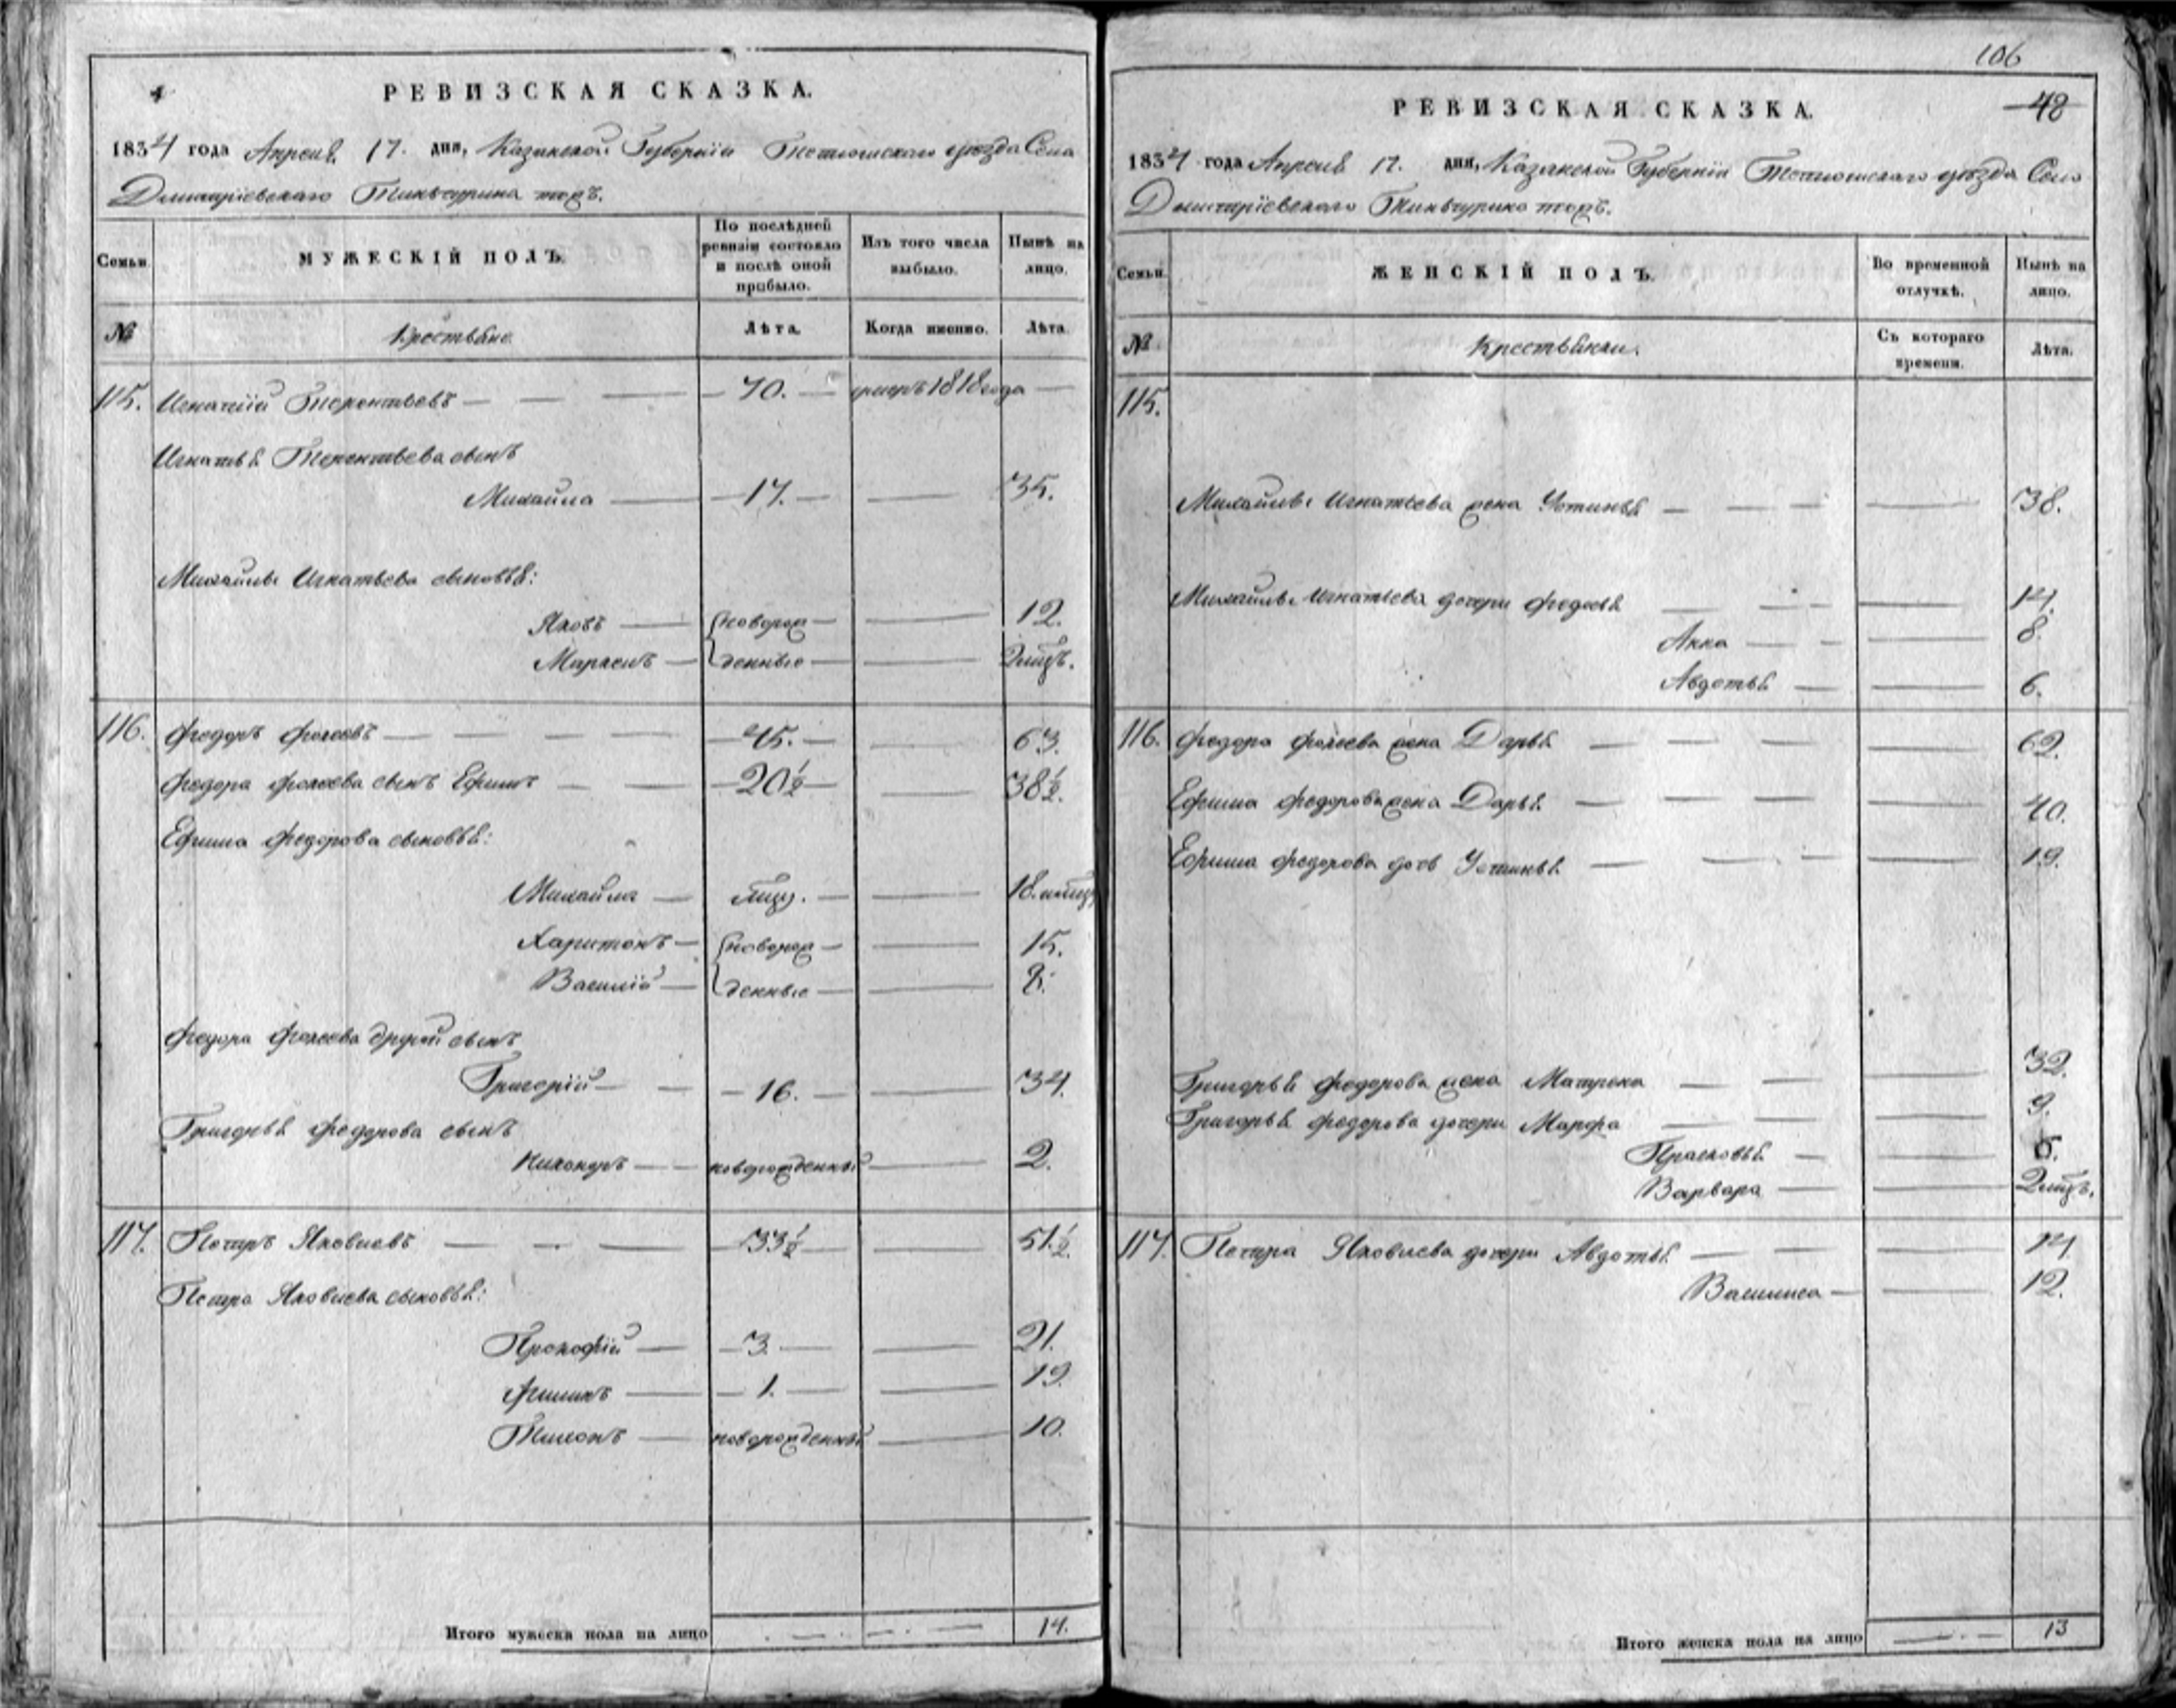 РЕВИЗСКАЯ СКАЗКА.
1834 года Апреля 17. дня, Казанской Губернїи Тетюшскаго уѣзда Села
Дмитрїевскаго Тинчурина тожъ.
Семьи
МУЖЕСКІЙ ПОЛЪ.
По послѣдней ревизіи состояло и послѣ оной прибыло.
Изъ того числа выбыло.
Нынѣ на лицо.
№
Крестьяне
Лѣта.
Когда именно.
Лѣта.
115. Игнатій Терентьевъ 70. умеръ 1818 года
Игнатья Терентьева сынъ
Михайла 17. 35.
Михайлы Игнатьева сыновья:
Яковъ новорож 12.
Маркелъ денные 2 мцъ.
116. Федоръ Фокеевъ 45. 63.
Федора Фокеева сынъ Ефимъ 20½ 38½.
Ефима Федорова сыновья:
Михайла 18.
Харитонъ новорож 15.
Василій денные 8.
Федора Фокеева другой сынъ
Григорій 16. 34.
Григорья Федорова сынъ
Никаноръ новорожденный 2.
117. Петръ Яковлевъ 33½ 51½.
Петра Яковлева сыновья:
Прокофій 3. 21.
Филипъ 1. 19.
Тимонъ новорожденный 10.
Итого мужеска пола на лицо 14.
106
48
РЕВИЗСКАЯ СКАЗКА.
1834 года Апреля 17. дня, Казанской Губернїи Тетюшскаго уѣзда Села
Дмитрїевскаго Тинчурино тожъ.
Семьи
ЖЕНСКІЙ ПОЛЪ.
Во временной отлучкѣ.
Нынѣ на лицо.
№
Крестьянки.
Съ котораго времени.
Лѣта.
115.
Михайлы Игнатьева жена Устинья 38.
Михайлы Игнатьева дочери Федосья 14.
Анна 8.
Авдотья 6.
116. Федора Фокеева жена Дарья 62.
Ефима Федорова жена Дарья 40.
Ефима Федорова дочь Устинья 19.
Григорья Федорова жена Матрена 32.
Григорья Федорова дочери Марфа 9.
Прасковья 5.
Варвара 2 мцъ.
117. Петра Яковлева дочери Авдотья 14
Василиса 12.
Итого женска пола на лицо 13